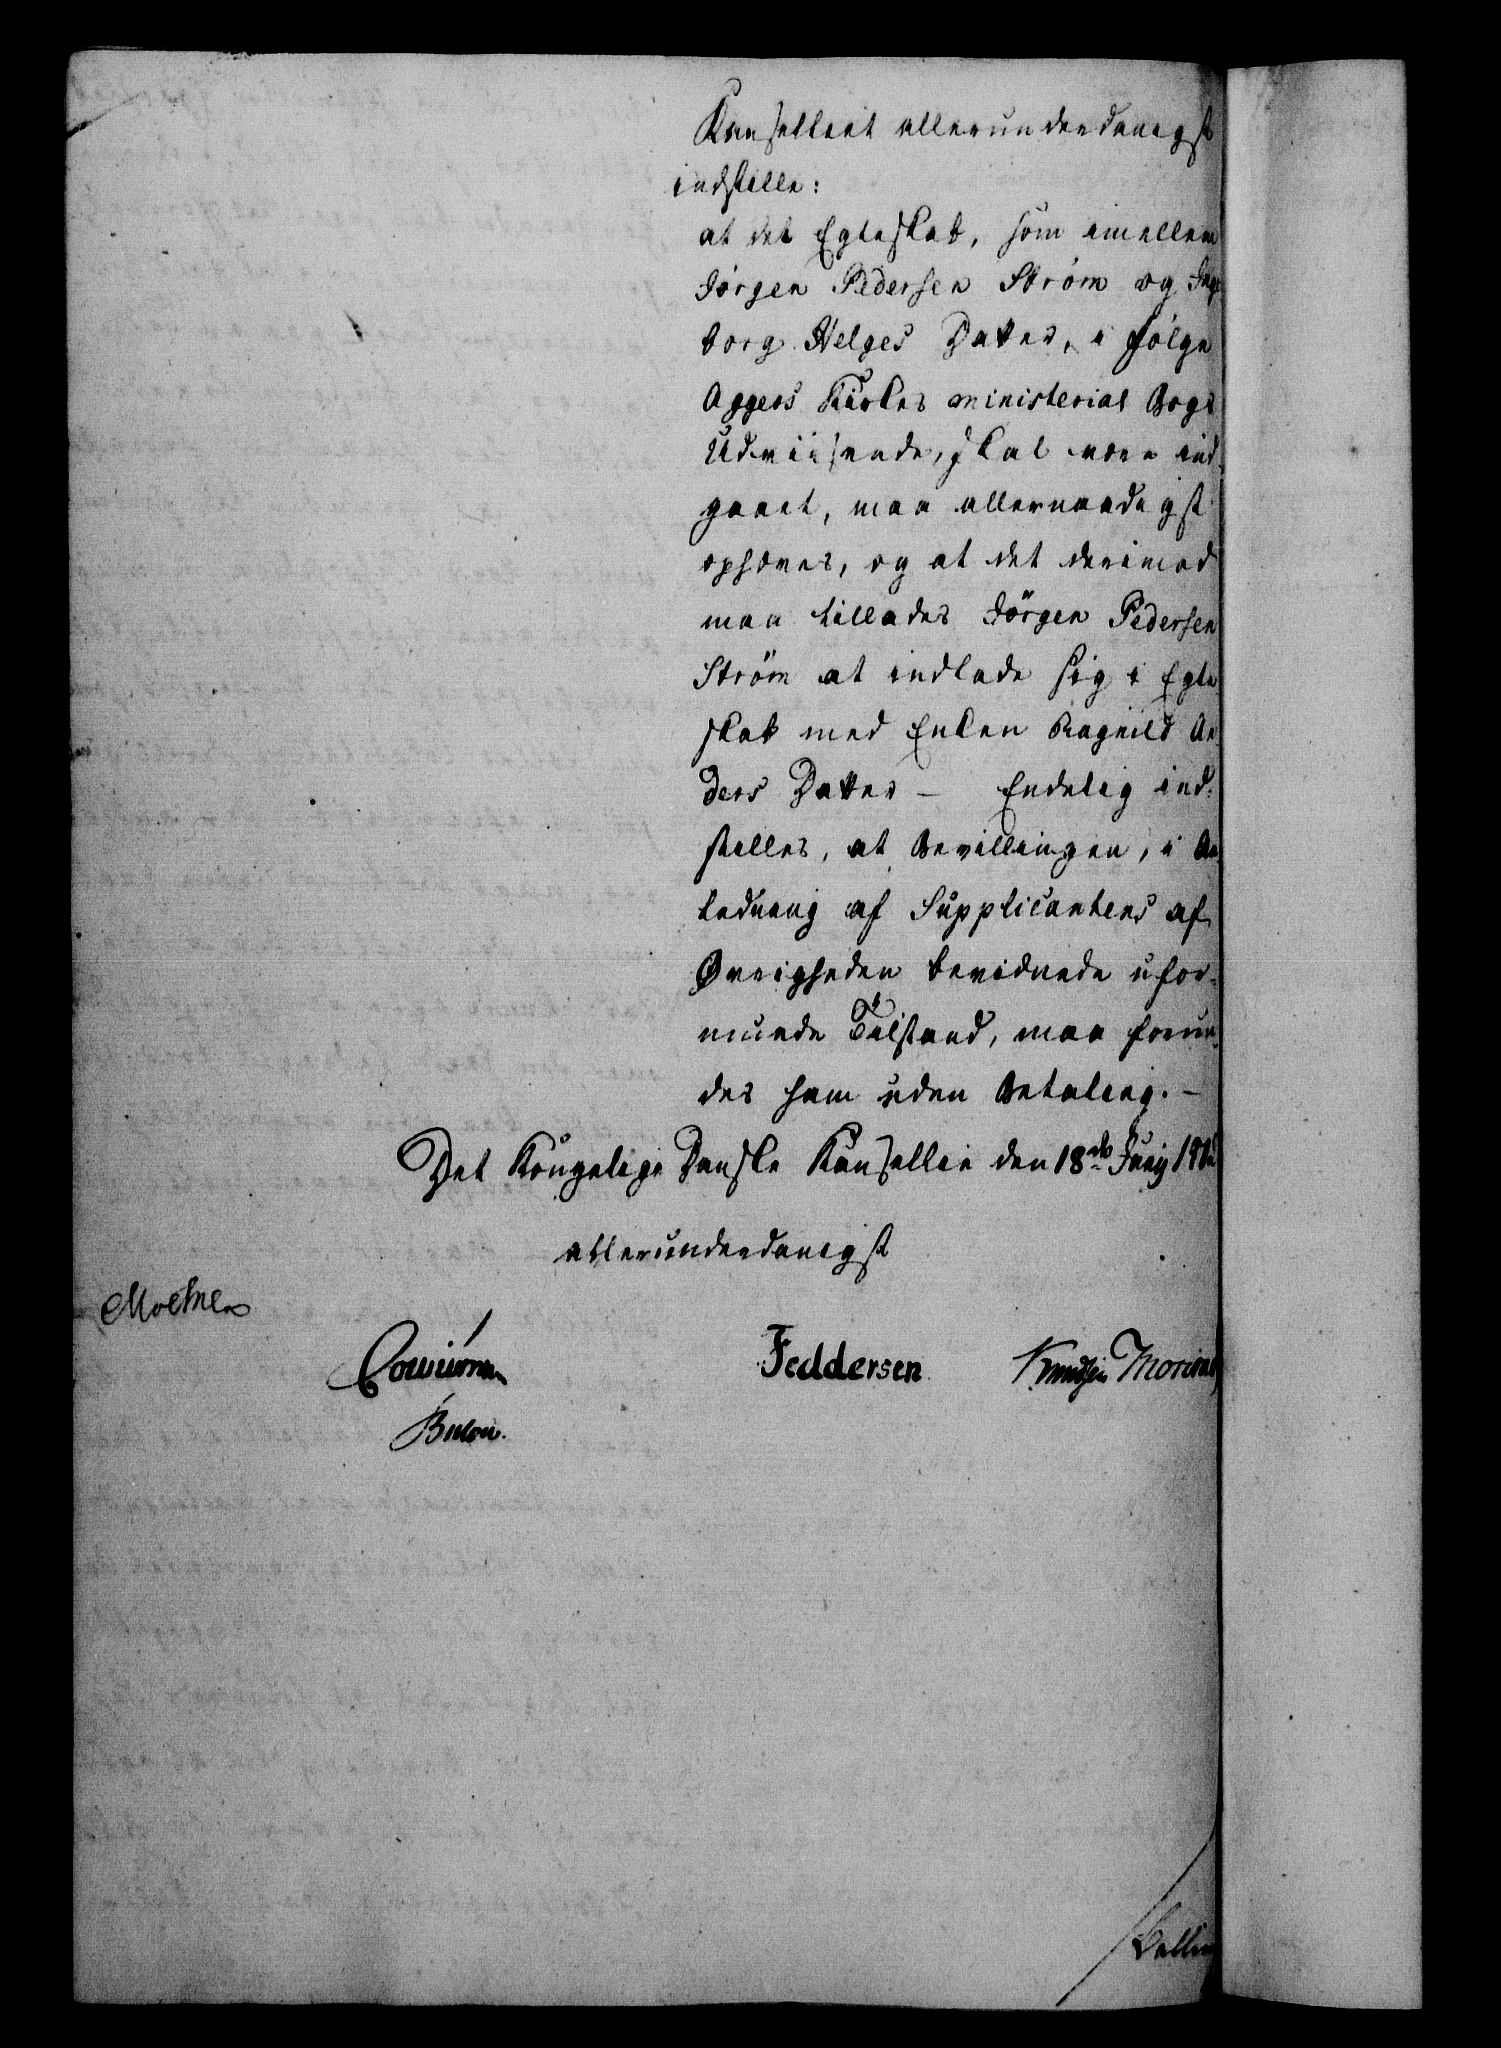 Kanselliet allerunderdanigst
indstille:
at det Egteskab, som imellem
Jørgen Pedersen Strøm og Inge
borg Helges Datter, i følge
Aggers Kirkes ministerial Bogs
Udviisende, skal være ind-
gaaet, maa allernaadigst
ophæves, og at det derimod
maa tillades Jørgen Pedersen
Strøm at indlade sig i Egte
skab med Enken Ragnild An
ders Datter – Endelig ind-
stilles, at Bevillingen, i An
ledning af Supplicantens af
Øvrigheden bevidnede ufor-
muende Tilstand, maa forun-
des ham uden Betaling. –
Det Kongelige Danske Kansellie den 18de Junij
allerunderdanigst
Moltke
Feddersen Knudsen
Bülow.